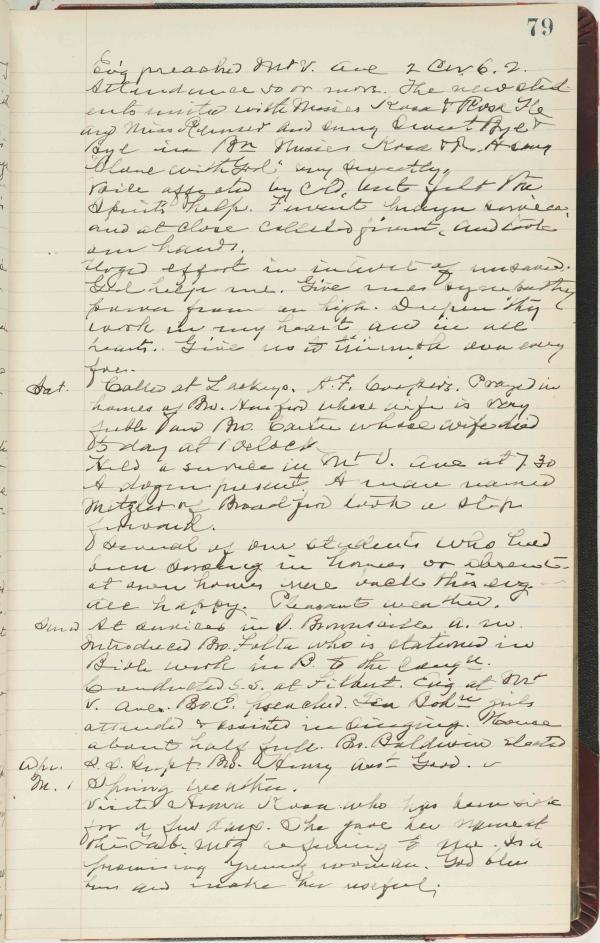 79
Ev'g preached Mt V. Ave 2 Cor 6. 2.
Attendance 50 or more. The new stud-
ents united with Misses Kosa & Rosa He
and Miss and sung Sweet Bye &
Bye in Bn Misses Kosa & R. H sung
"Alone with God" very sweetly.
Voice affected by cold, but felt the
Spirits help. Fervent hymn service,
and at close collected front, and took
our hands.
Urged effort in interest of unsaved.
God help me. Give me sympathy
power from on high. Deepen thy
work in my heart and in all
hearts. Give us to triumph over every
foe.
Sat. Called at Lackeys. A. F. Coopers. Prayed in
homes of Bro. whose wife is very
feeble and Bro. Carter whose wife died
to day at 1 oclock
Held a service in Mt V. Ave at 7.30
A dozen present. A man named
Metzler of Bradford took a step
forward.
Several of our students who had
been in homes or absent
at own homes were back this evg
all happy. Pleasant weather.
Sund At services in S. Brownsville a. m.
Introduced Bro. who is stationed in
Bible work in B. to the cong'n.
Conducted S.S. at Filbert. Evg at Mt
V. Ave. Bro E. preached. Ten Bohn girls
attended & assisted in singing. House
about half full. Bro. Baldwin elected
Apr. S. S. Supt. Bro. A Henry Asst. Good.
M. 1 Spring weather.
Visited Anna Kosa who has been sick
for a few days. She gave her name at
the Tab. mtg referring to me. Is a
promising young woman. God bless
her and make her useful.